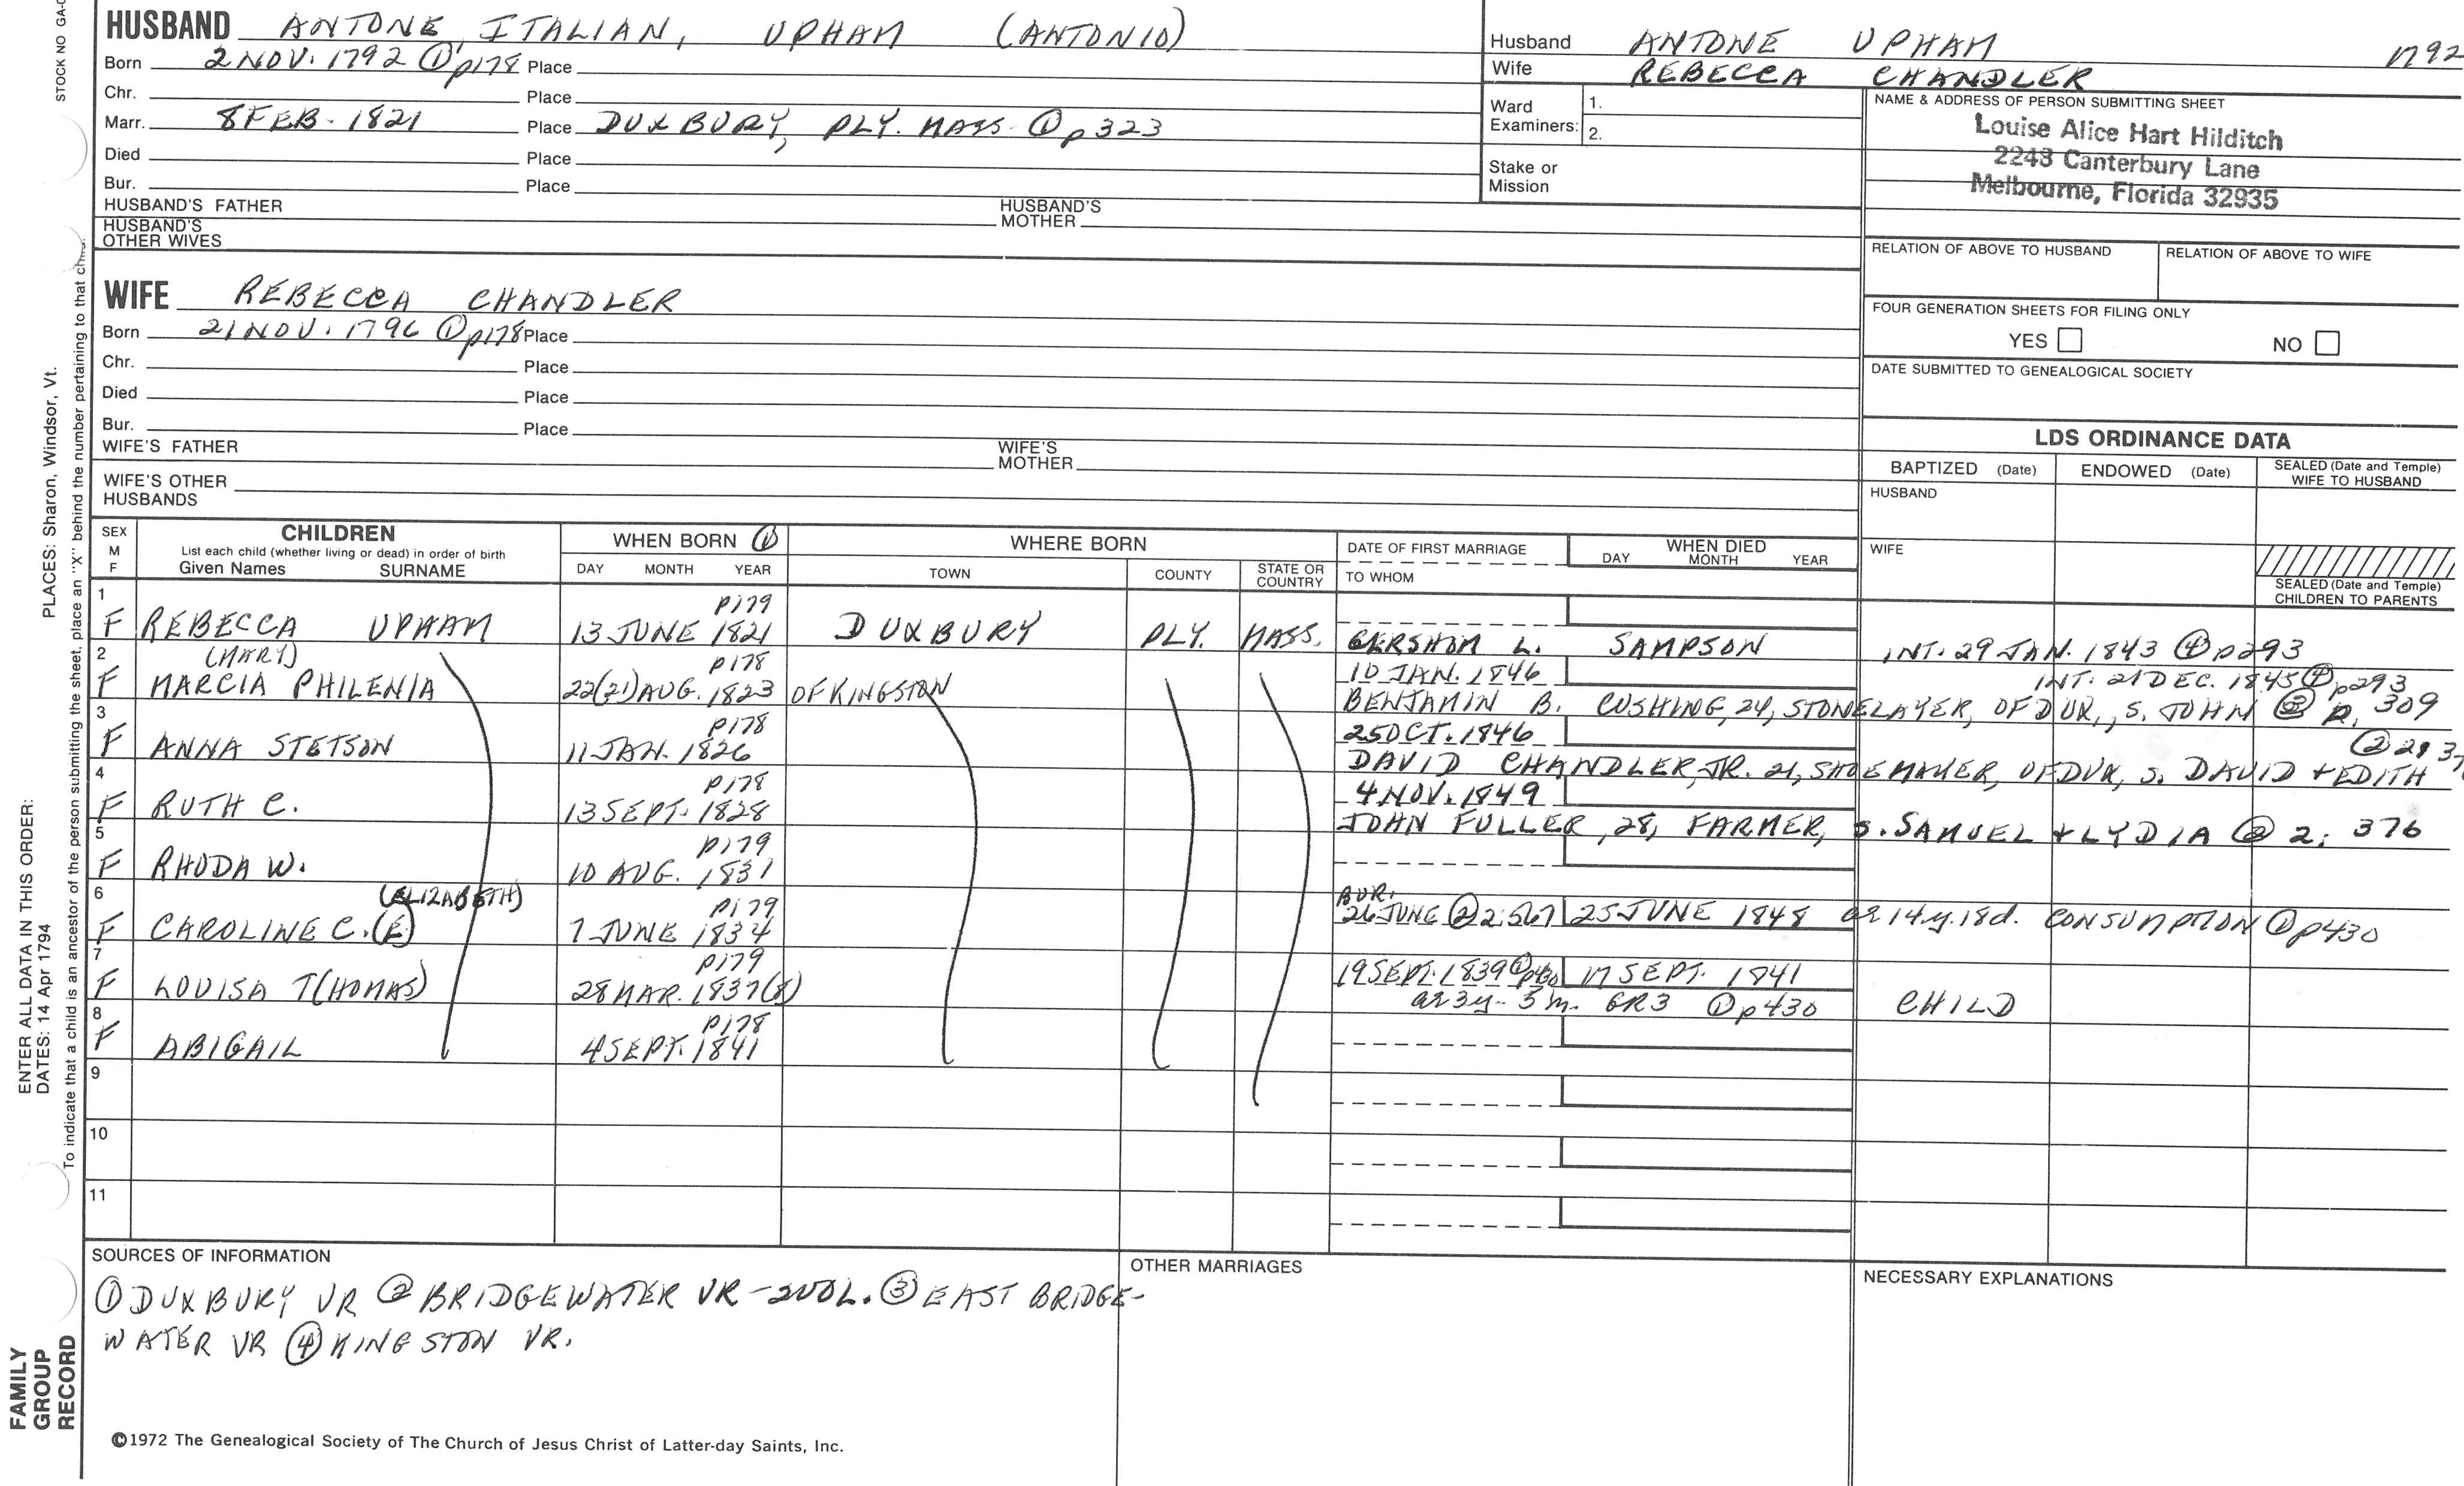 STOCK NO GA-
HUSBAND ANTONE, ITALIAN, UPHAM (ANTONIO)
Born 2 NOV. 1792 ① p178 Place
Chr. Place
Marr. 8 FEB. 1821 Place DUXBURY, PLY. MASS. ① p323
Died Place
Bur. Place
HUSBAND'S FATHER HUSBAND'S MOTHER
HUSBAND'S OTHER WIVES
Husband ANTONE UPHAM 1792
Wife REBECCA CHANDLER
Ward Examiners: 1.
2.
Stake or Mission
NAME & ADDRESS OF PERSON SUBMITTING SHEET
Louise Alice Hart Hilditch
2243 Canterbury Lane
Melbourne, Florida 32935
RELATION OF ABOVE TO HUSBAND RELATION OF ABOVE TO WIFE
FOUR GENERATION SHEETS FOR FILING ONLY
YES NO
DATE SUBMITTED TO GENEALOGICAL SOCIETY
WIFE REBECCA CHANDLER
Born 21 NOV. 1796 ① p178 Place
Chr. Place
Died Place
Bur. Place
WIFE'S FATHER WIFE'S MOTHER
WIFE'S OTHER HUSBANDS
LDS ORDINANCE DATA
BAPTIZED (Date) ENDOWED (Date) SEALED (Date and Temple) WIFE TO HUSBAND
HUSBAND
WIFE
SEALED (Date and Temple) CHILDREN TO PARENTS
SEX M F
CHILDREN
List each child (whether living or dead) in order of birth
Given Names SURNAME
WHEN BORN ①
DAY MONTH YEAR
WHERE BORN
TOWN COUNTY STATE OR COUNTRY
DATE OF FIRST MARRIAGE
TO WHOM
WHEN DIED
DAY MONTH YEAR
1 p179
F REBECCA UPHAM 13 JUNE 1821 DUXBURY PLY. MASS. GERSHOM L. SAMPSON INT. 29 JAN. 1843 ④ p293
2 (MARY) p178 10 JAN. 1846 INT. 21 DEC. 1845 ④ p293
F MARCIA PHILENIA 22(21) AUG. 1823 OF KINGSTON BENJAMIN B. CUSHING, 24, STONELAYER, OF DUX., S. JOHN ② p. 309
3 p178 25 OCT. 1846 ② 2:37
F ANNA STETSON 11 JAN. 1826 DAVID CHANDLER, JR. 21, SHOEMAKER, OF DUX, S. DAVID + EDITH
4 p178 4 NOV. 1849
F RUTH C. 13 SEPT. 1828 JOHN FULLER, 28, FARMER, S. SAMUEL + LYDIA ② 2: 376
5 p179
F RHODA W. 10 AUG. 1831
6 (ELIZABETH) p179 BUR.
F CAROLINE C. (E) 7 JUNE 1834 26 JUNE ② 2:567 25 JUNE 1848 ae 14y. 18d. CONSUMPTION ① p430
7 p179 19 SEPT. 1839 ① p430 17 SEPT. 1841
F LOUISA T(HOMAS) 28 MAR. 1837(8) ae 3y - 5m. GR3 ① p430 CHILD
8 p178
F ABIGAIL 4 SEPT. 1841
9
10
11
SOURCES OF INFORMATION
① DUXBURY VR ② BRIDGEWATER VR - 2VOL. ③ EAST BRIDGE-
WATER VR ④ KINGSTON VR.
OTHER MARRIAGES
NECESSARY EXPLANATIONS
©1972 The Genealogical Society of The Church of Jesus Christ of Latter-day Saints, Inc.
FAMILY GROUP RECORD
ENTER ALL DATA IN THIS ORDER:
DATES: 14 Apr 1794
PLACES: Sharon, Windsor, Vt.
To indicate that a child is an ancestor of the person submitting the sheet, place an "X" behind the number pertaining to that